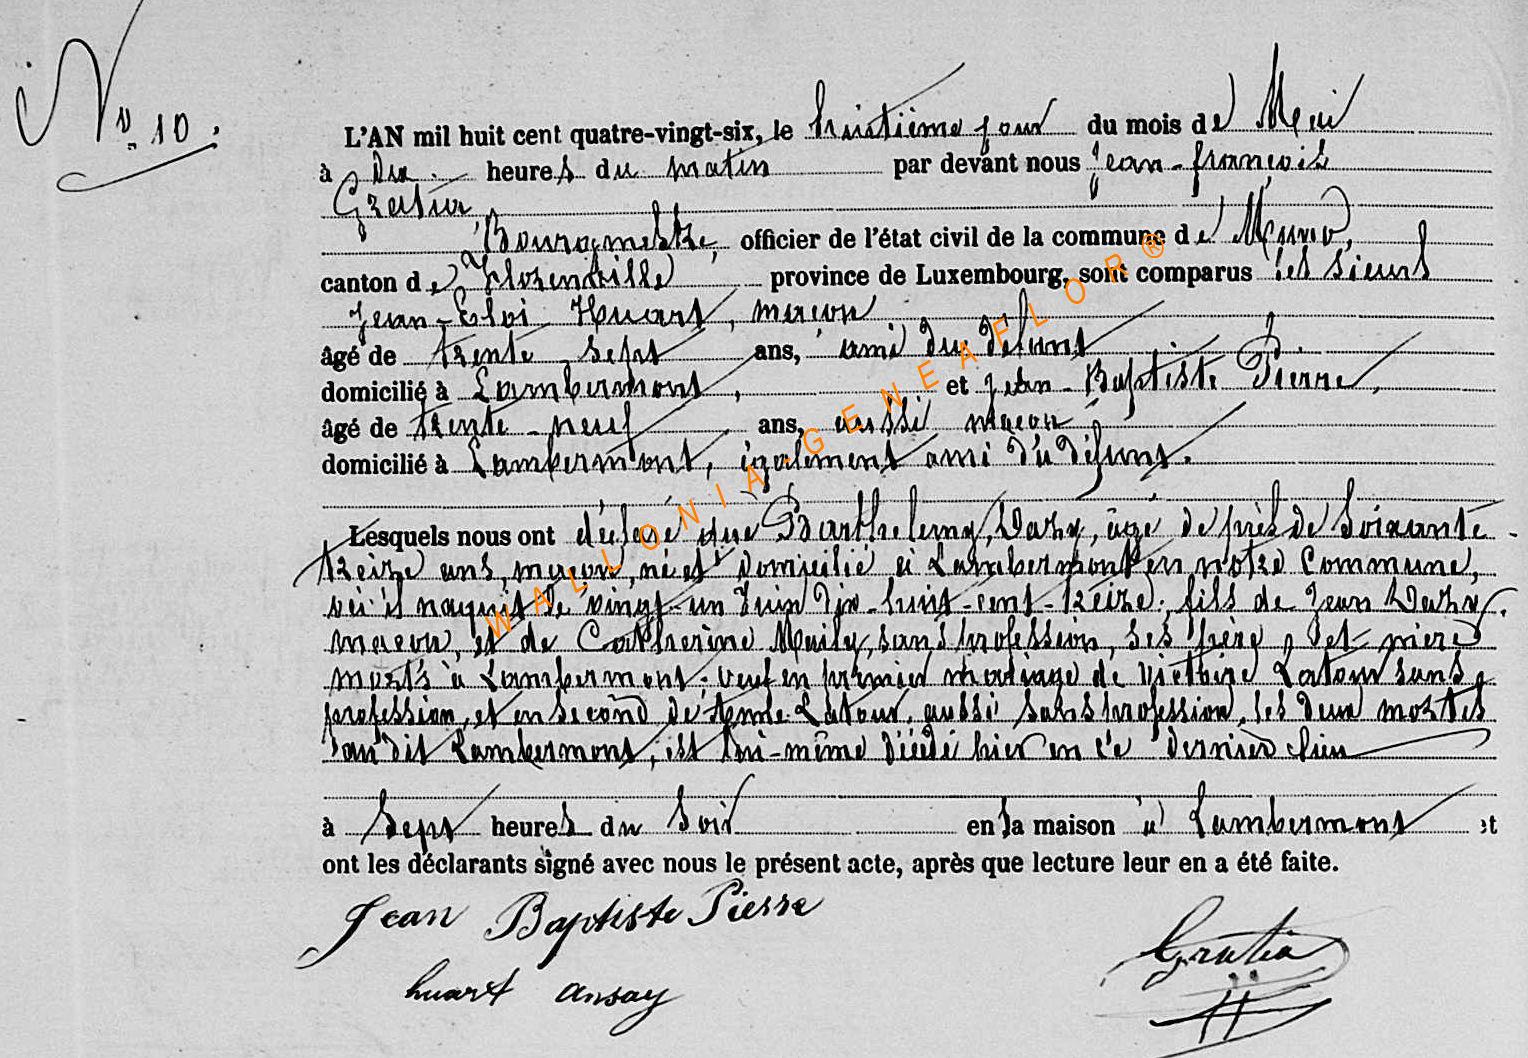 N° 10.
L'AN mil huit cent quatre-vingt-six, le huitième jour du mois de Mai
à dix heures du matin par devant nous Jean-françois
Gratia
Bourgmestre, officier de l'état civil de la commune de Muno,
canton de Florenville province de Luxembourg, sont comparus les sieurs
Jean-Eloi Huart, maçon
âgé de trente sept ans, ami du défunt
domicilié à Lambermont, et Jean-Baptiste Pierre,
âgé de trente-neuf ans, aussi maçon
domicilié à Lambermont, également ami du défunt.
Lesquels nous ont déclaré que Barthelemy, âgé de près de soixante-
treize ans, maçon, né et domicilié à Lambermont en notre commune,
où il naquit le vingt-un Juin dix-huit-cent-treize; fils de Jean
maçon, et de Catherine sans profession, ses père et mère
morts à Lambermont; veuf en premier mariage de Victoire Latour sans
profession, et en second de Anne Latour, aussi sans profession, les deux mortes
au dit Lambermont, est lui-même décédé hier en ce dernier lieu
à sept heures du soir en sa maison à Lambermont et
ont les déclarants signé avec nous le présent acte, après que lecture leur en a été faite.
Jean Baptiste Pierre
Gratia
huart ansay
WALLONIA-GENEAFLOR®